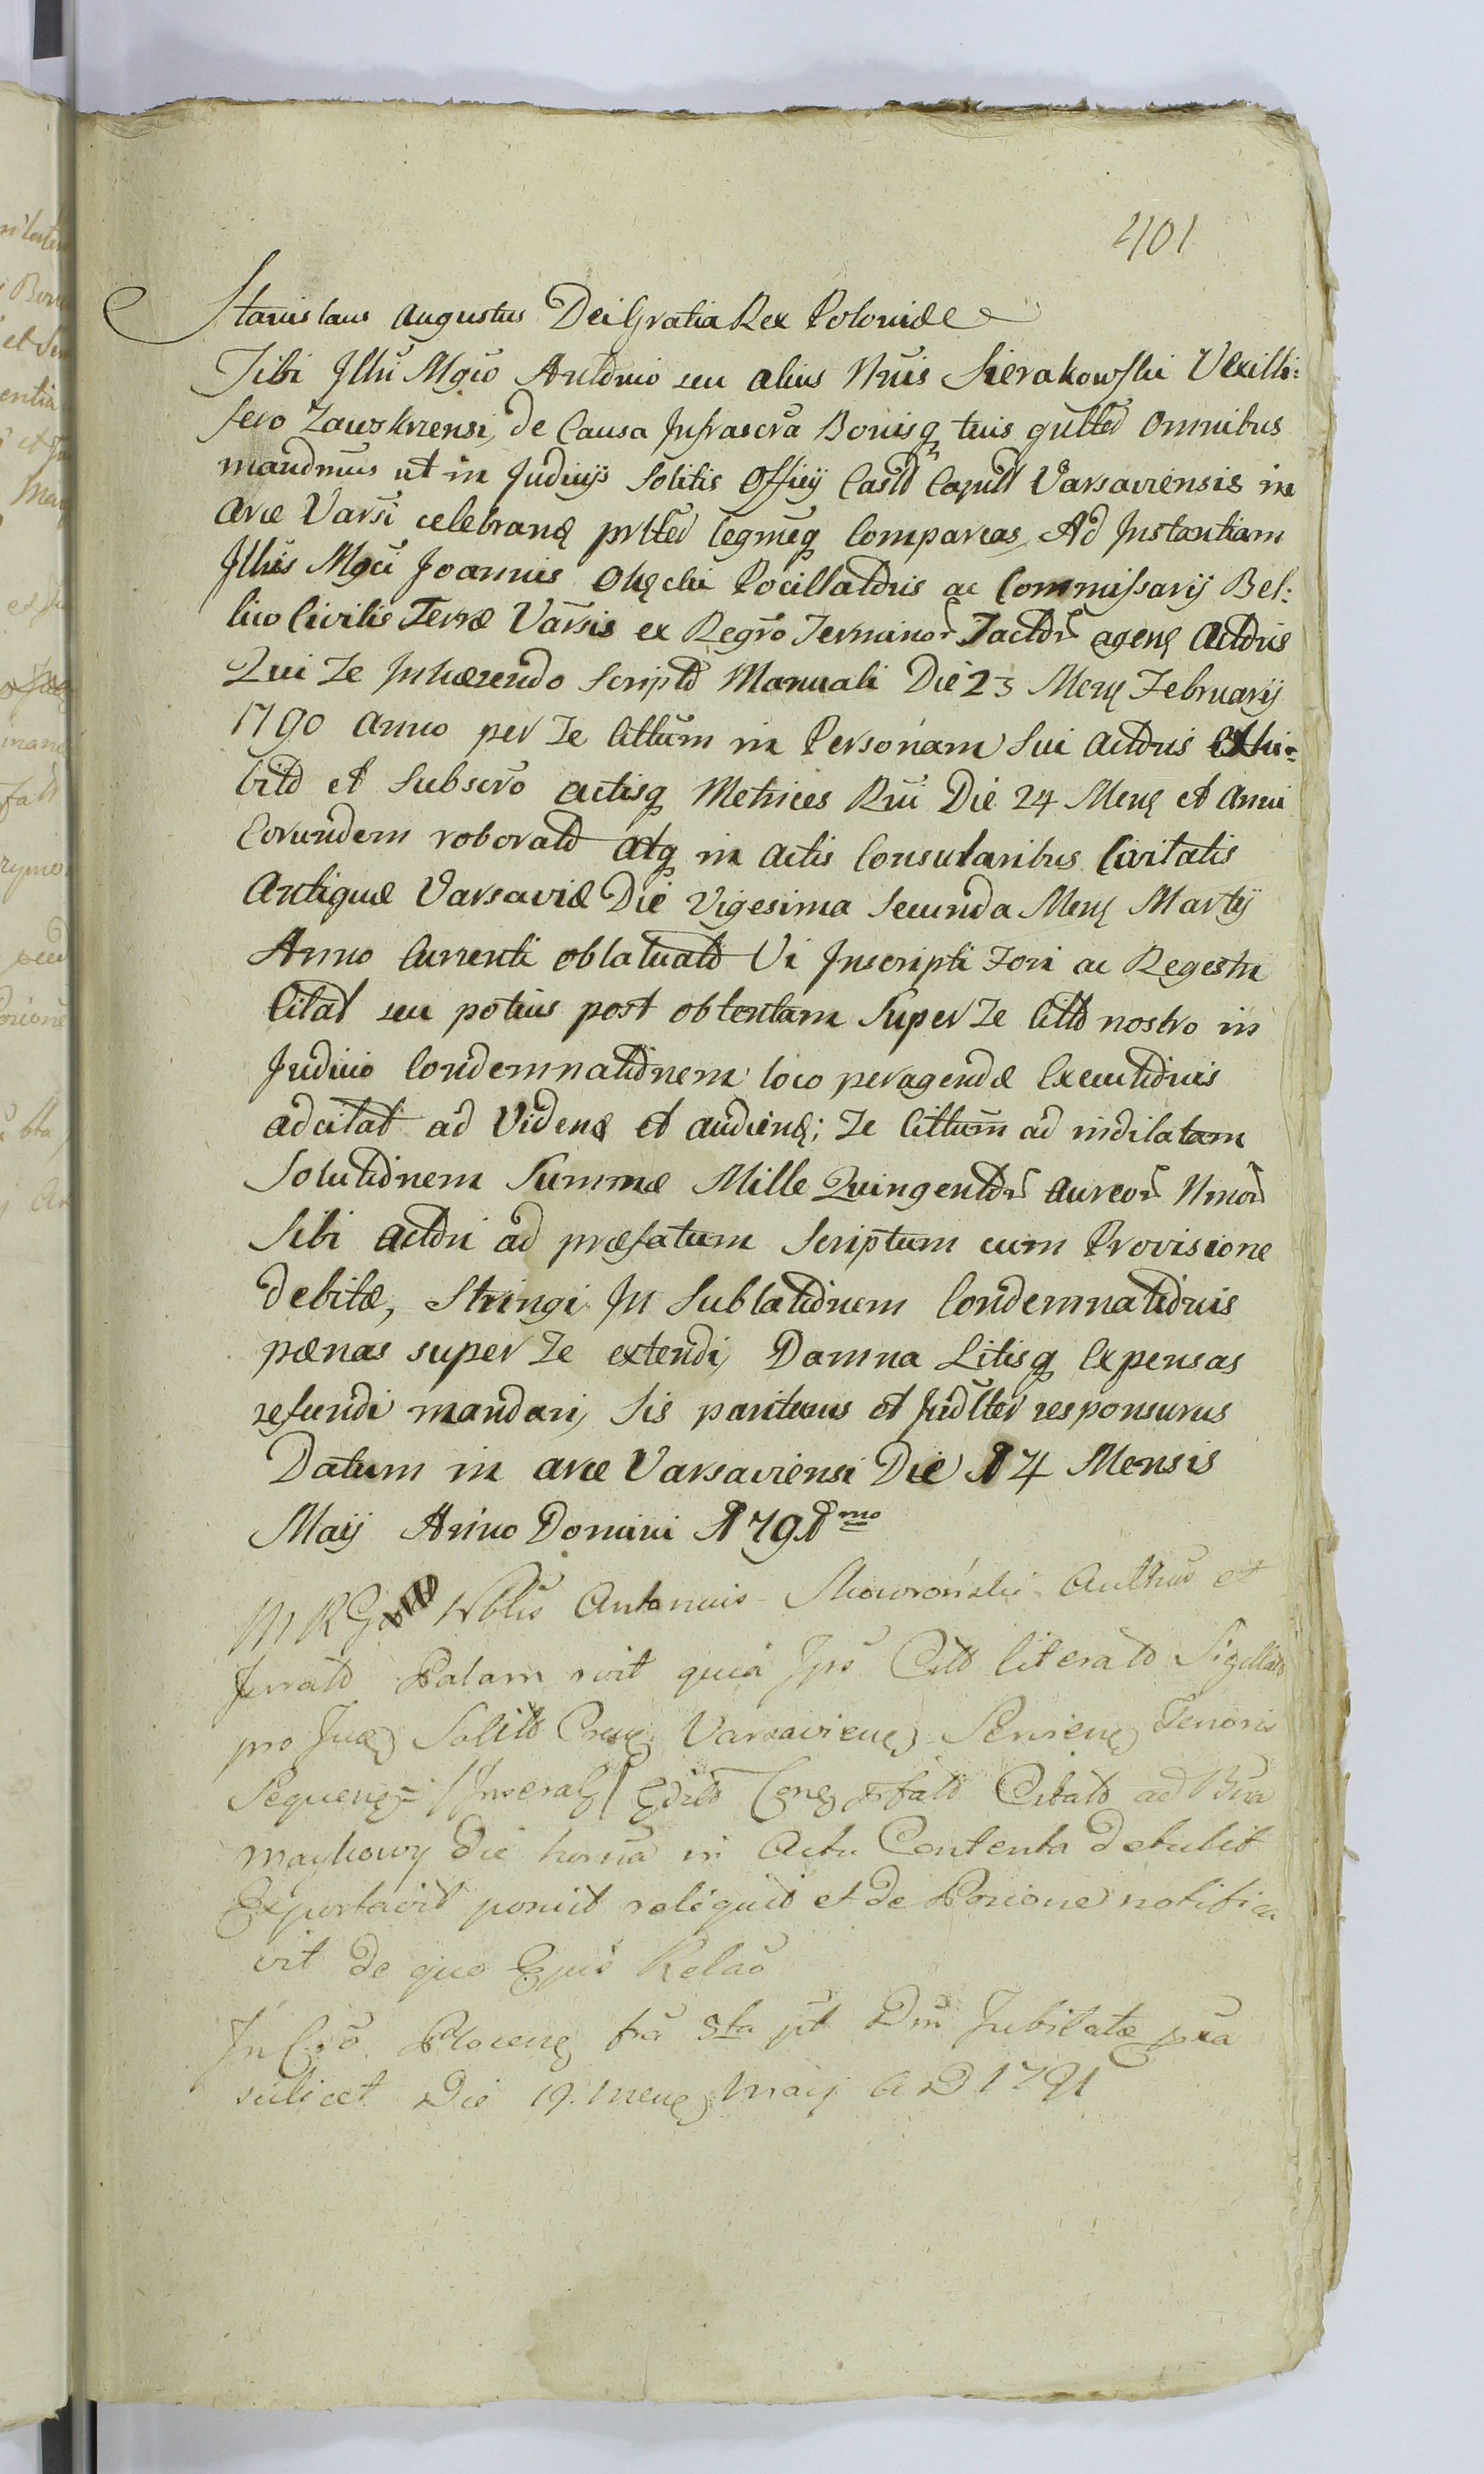 401
Stanislaus Augustus Dei Gratia Rex Poloniæ
Tibi Illri Mgco Antonio seu alius Nnis Sierakowski Vexilli:
fero Zawskrzensi, de Causa Infrascra Bonisq tuis gnlter Omnibus
mandmus ut in Judicijs Solitis Officij Castr Capitl Varsaviensis in
Arce Varsi celebranę prlter legmeq Compareas, Ad Instantiam
Illris Mgci Joannis Okęcki Pocillatoris ac Commissarij Bel:
lico Civilis Terræ Varsis ex Regro Terminor Tactor agenę Actoris
Qui Te Inhærendo Scripto Manuali Die 23 Menę Februarij
1790 Anno per Te Cittum in Personam Sui Actoris Exhi=
bito et Subscro actisq Metrices Rni Die 24 Menę et Anni
Eorundem roborato atq in Actis Consularibus Civitatis
Antiquæ Varsaviæ Die Vigesima Secunda Menę Martij
Anno Currenti oblatuato Vi Inscripti Fori ac Regestri
Citat seu potius post obtentam Super Te Citto nostro in
Judicio Condemnationem loco peragendæ Executionis
adcitat ad Videnę et audienę; Te Cittum ad indilatam
Solutionem Summæ Mille Quingentor aureor Nmor
Sibi Actori ad præfatum Scriptum cum Provisione
debitæ, Stringi In Sublationem Condemnationis
pænas super Te extendi, Damna Litisq Expensas
refundi mandari, Sis pariturus et Judlter responsurus
Datum in arce Varsaviensi Die 14 Mensis
Maij Anno Domini 1791mo
M R G Nblis Antonius Skowroński Authus et
Jurato Palam rvit quia Ipse Citto literato Sigillato
pro Judę Solito Varsavienę Tenoris
Sequenę = /Inseratę/ Edito prfato Citato ad Bna
Maykowy die herna in Actu Contenta detulit
Exportavit ponuit reliquit et de Pocione notifica
vit de quo Ejus Relao
In Cro Plocenę fra 5ta pt Dni Jubilate pxa
scilicet Die 19. menę Maij A D 1791